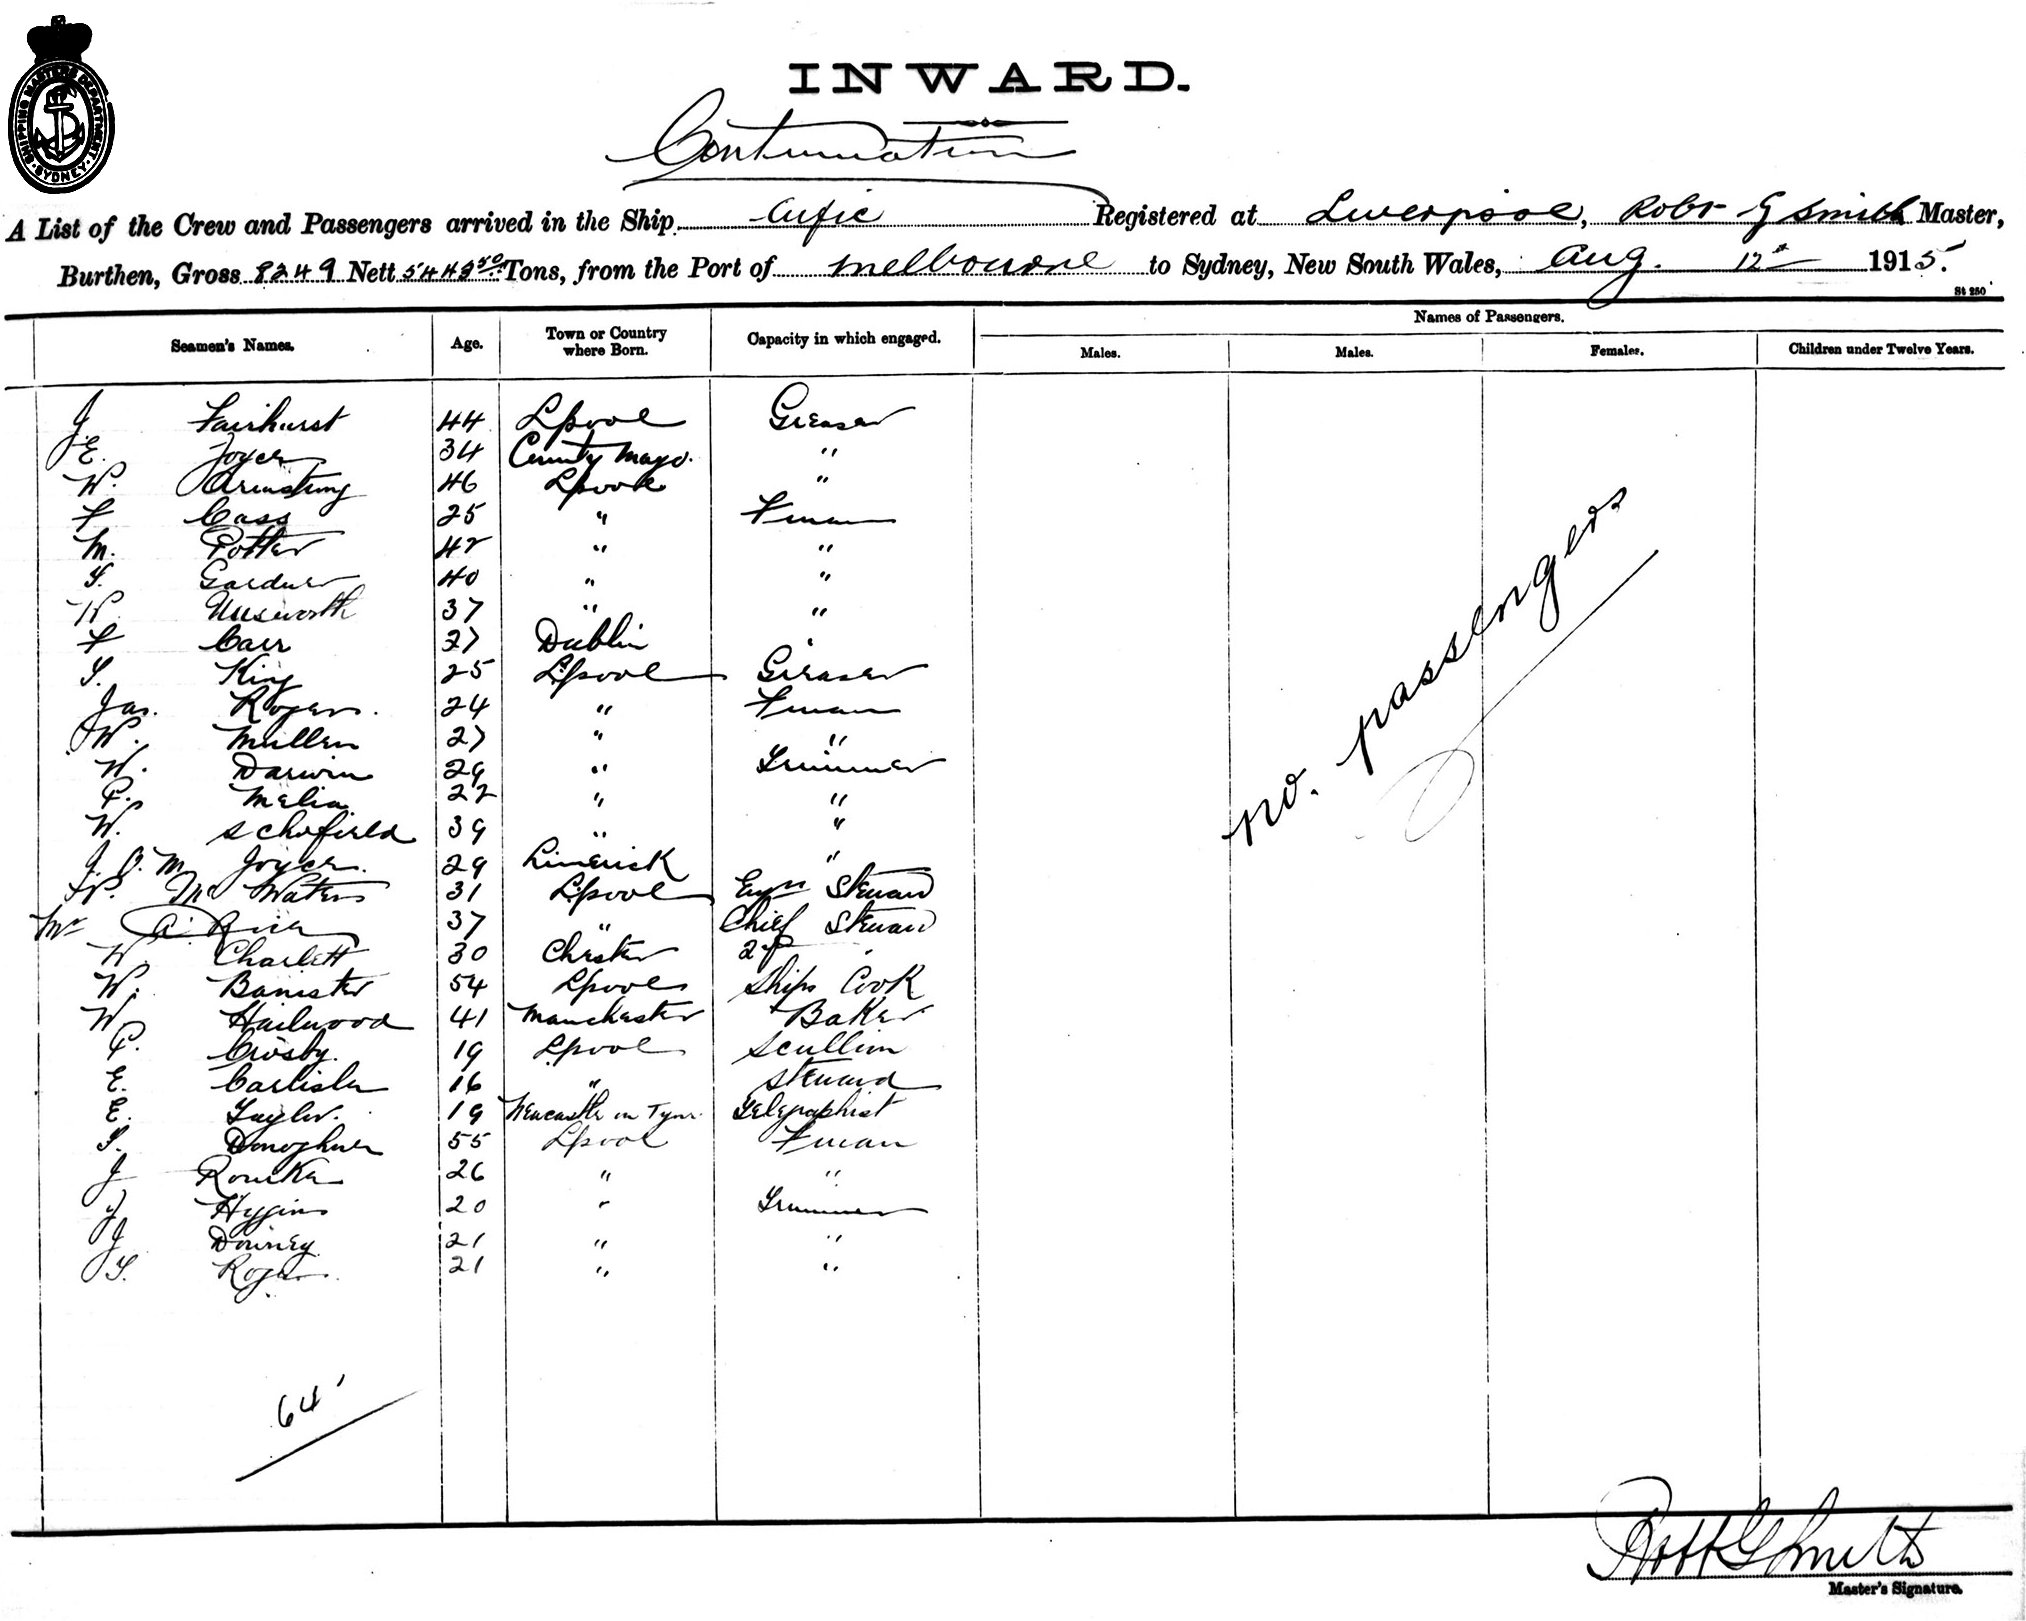 SHIPPING MASTERS DEPARTMENT SYDNEY
INWARD.
Continuation
A List of the Crew and Passengers arrived in the Ship Cufic Registered at Liverpool, Robt G Smith Master,
Burthen, Gross 8249 Nett Tons, from the Port of Melbourne to Sydney, New South Wales, Aug. 12th 1915.
St 250
Seamen's Names. Age. Town or Country where Born. Capacity in which engaged. Names of Passengers.
Males. Males. Females. Children under Twelve Years.
J Fairhurst 44 Lpool Greaser
E. Joyce 34 County Mayo. "
W. Armstrong 46 Lpool "
F Cass 25 " Fman
M. Potter 42 " "
T. Gardner 40 " "
W Unsworth 37 " "
F Carr 27 Dublin "
T. King 25 Lpool Greaser
Jas. Rogers. 24 " Fman
W. Mullen 27 " "
W. Darwin 29 " Trimmer
P. Melia 22 " "
W. Schofield 39 " "
J. O. M. Joyce. 29 Limerick "
W. Mc Waters 31 Lpool Engrs Steward
Mr A. 37 " Chief Steward
W. Charlett 30 Chester 2nd "
W. Banister 54 Lpool Ships Cook
W. Hailwood 41 Manchester Baker
P. Crosby. 19 Lpool Scullion
E. Carlisle 16 " Steward
E. Taylor. 19 Newcastle on Tyne. Telegraphist
T. Donoghue 55 Lpool Fman
J Rourke 26 " "
J Higgins 20 " Trimmer
J Downey 21 " "
T. Rogers. 21 " "
no. passengers
64
Robt G Smith
Master's Signature.